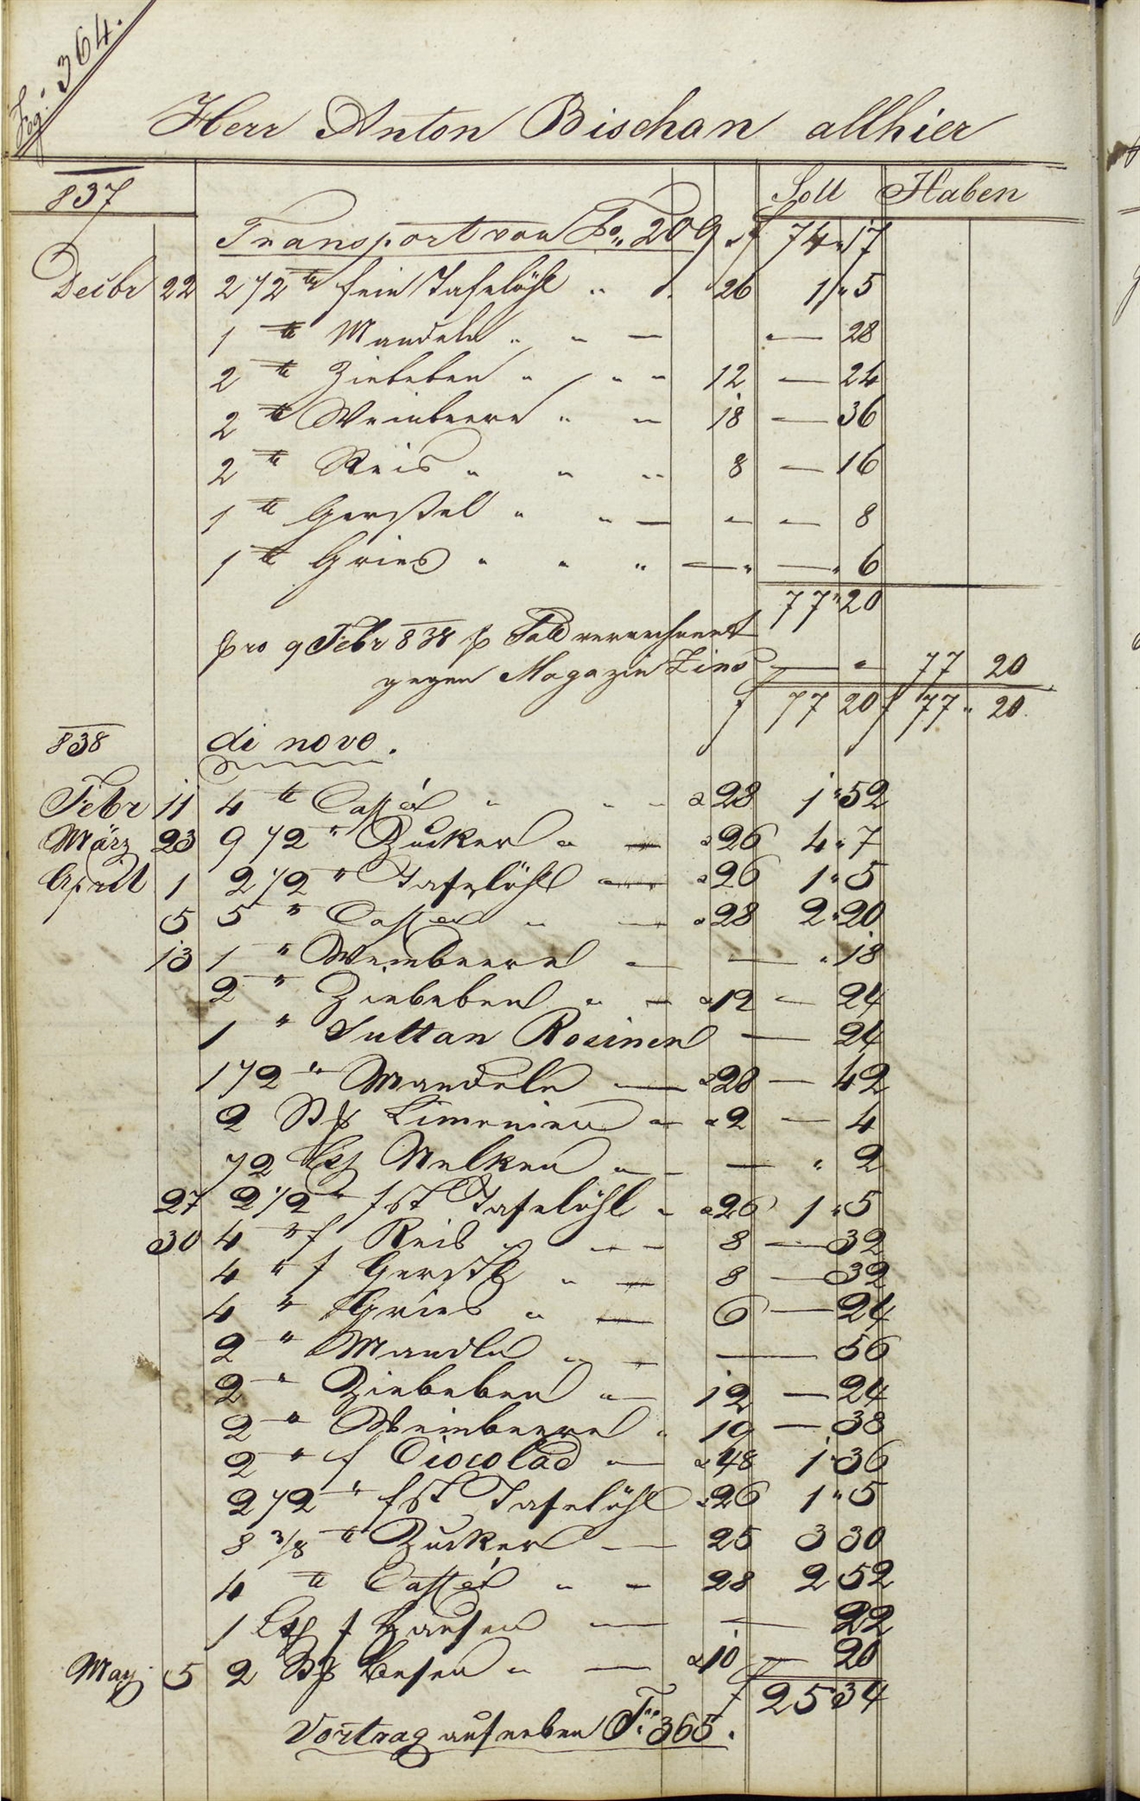 Fog: 364.
Herr Anton Bischan allhier
837 Soll Haben
Transport von Fo. 209 f 74 " 17
Decbr 22 2 1/2 ℔ fein Tafelöhl " " 26 1 " 5
1 ℔ Mandeln " " — " — 28
2 ℔ Ziebeben " " " 12 — 24
2 ℔ Weinbeere " " 18 — 36
2 ℔ Reis " " " 8 — 16
1 ℔ Gerstel " " — " — 8
1 ℔ Gries " " " — " — " 6
77 " 20
pro 9 Febr 838 p Saldo verrechnet
gegen Magazin Zins — " 77 20
f 77 20 f 77 " 20
838 di novo.
Febr 11 4 ℔ Caffée " " " a 28 1 " 52
März 23 9 1/2 " Zucker " — a 26 4 " 7
April 1 2 1/2 " Tafelöhl " — a 26 1 " 5
5 5 " Caffee " — a 28 2 " 20
13 1 " Weinbeere — — " 18
2 " Ziebeben " — a 12 — 24
1 " Sultan Rosinen — 24
1 1/2 " Mandeln — a 28 — 42
2 St Limonien " a 2 — 4
1/2 Lth Nelken " — — " 2
27 2 1/2 " fst Tafelöhl " a 26 1 " 5
30 4 " f Reis " " — 8 — 32
4 " f Gerstl " — 8 — 32
4 " Gries " — 6 — 24
2 " Mandln " — — 56
2 " Ziebeben " — 12 — 24
2 " Weinbeere " 19 — 38
2 " f Ciocolad " — a 48 1 " 36
2 1/2 " fst Tafelöhl a 26 1 " 5
8 3/8 ℔ Zucker — 25 3 30
4 ℔ Caffée " — 28 2 52
1 f — — 22
May 5 2 St Besen " — a 10 — 20
f 25 " 34
Vortrag auf neben Fo 365.